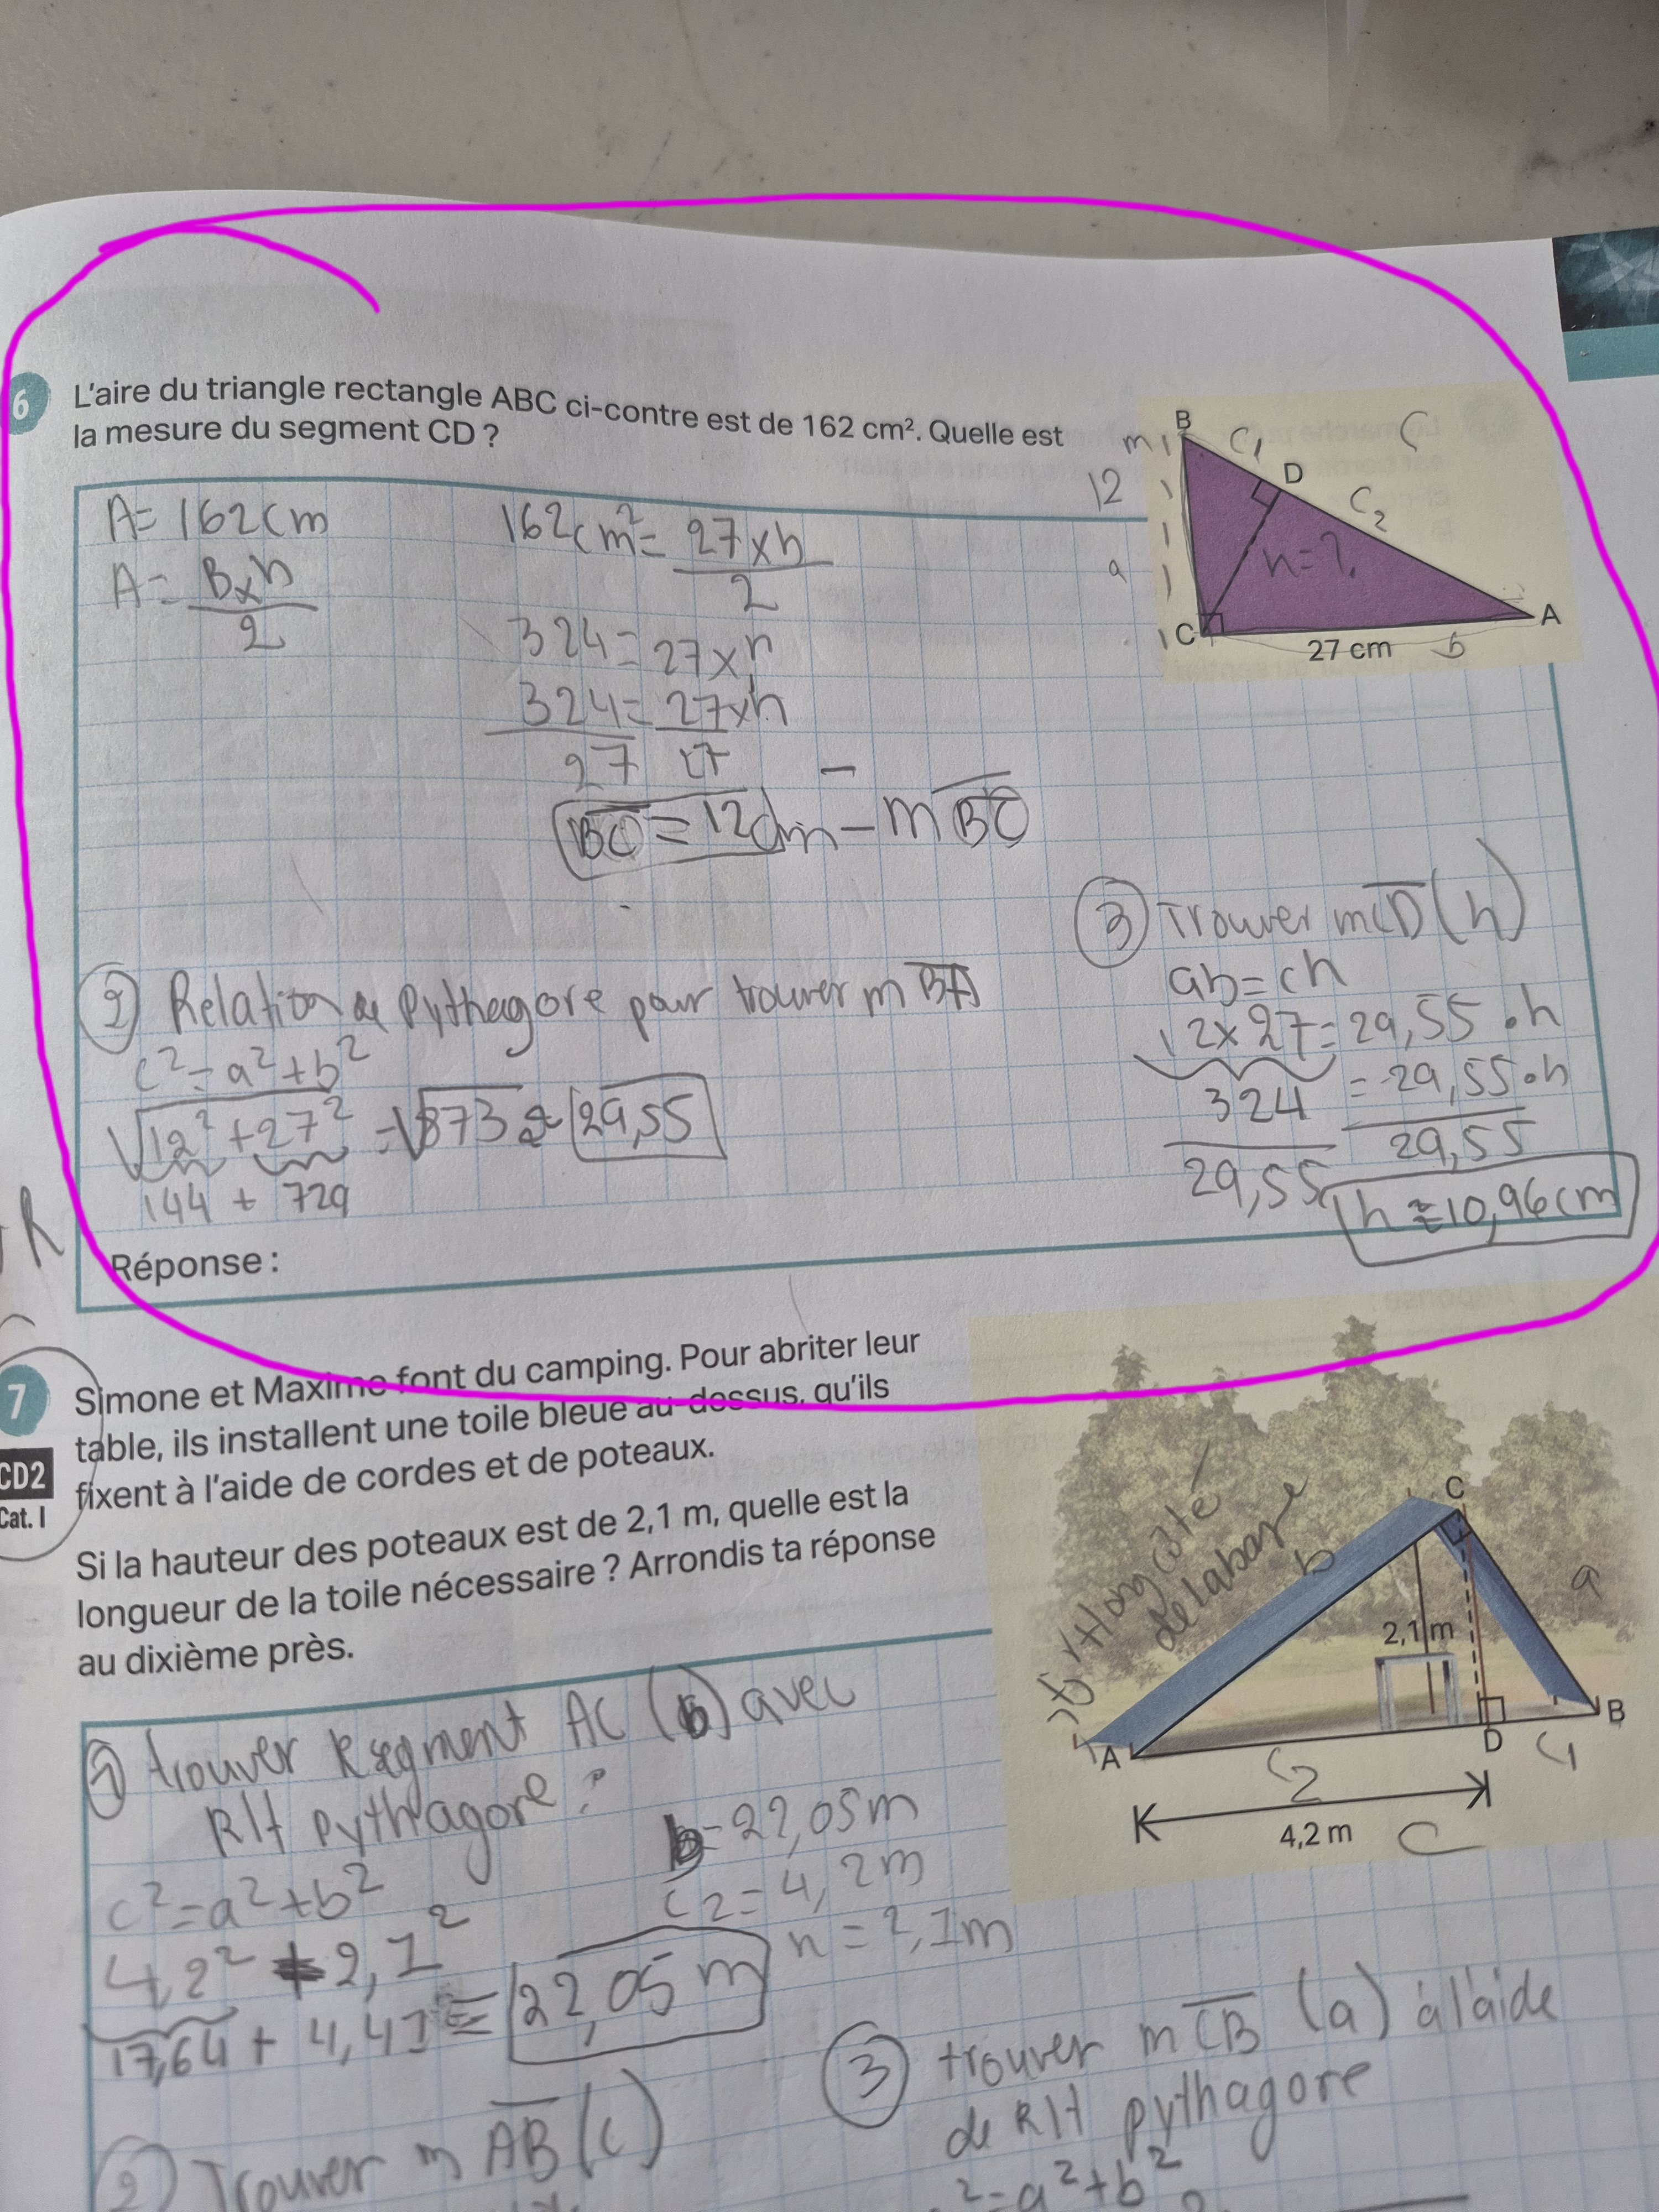 6
L'aire du triangle rectangle ABC ci-contre est de 162 cm². Quelle est
la mesure du segment CD ?
B
m
C1
C
12
D
C2
a
h=?
C
A
27 cm
b
A= 162cm
A= Bxh
2
162cm²= 27xh
2
324= 27xh
324= 27xh
27 27
BC = 12cm = m BC
2 Relation de Pythagore pour trouver m BA
c²=a²+b²
√12²+27² =√873 ≈ 29,55
144 + 729
3 Trouver mCD (h)
ab=ch
12x27=29,55•h
324 = 29,55•h
29,55 29,55
h ≈10,96cm
R
Réponse :
7
CD2
Cat. I
Simone et Maxime font du camping. Pour abriter leur
table, ils installent une toile bleue au-dessus, qu'ils
fixent à l'aide de cordes et de poteaux.
Si la hauteur des poteaux est de 2,1 m, quelle est la
longueur de la toile nécessaire ? Arrondis ta réponse
au dixième près.
C
b
a
2,1 m
A
D
B
C2
C1
4,2 m
C
1 trouver le segment AC (b) avec
RH pythagore :
c²=a²+b²
4,2² + 2,1²
17,64 + 4,41 = 22,05 m
b=22,05m
c2=4,2m
h=2,1m
2 Trouver m AB (c)
3 trouver m CB (a) à l'aide
de RH pythagore
²=a²+b²